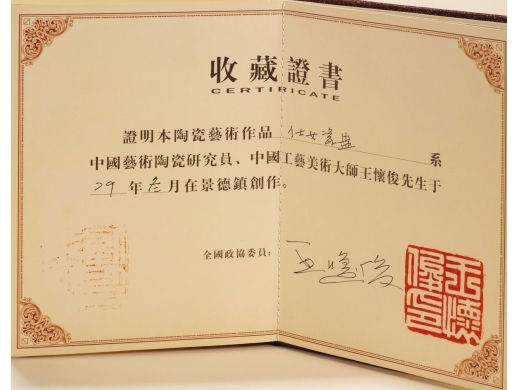 收藏證書
CERTIRICATE
證明本陶瓷藝術作品 仕女瓷盘 系
中國藝術陶瓷研究員、中國工藝美術大師王懷俊先生于
29 年 冬 月在景德鎮創作。
全國政協委員: 王懷俊
王懷俊印